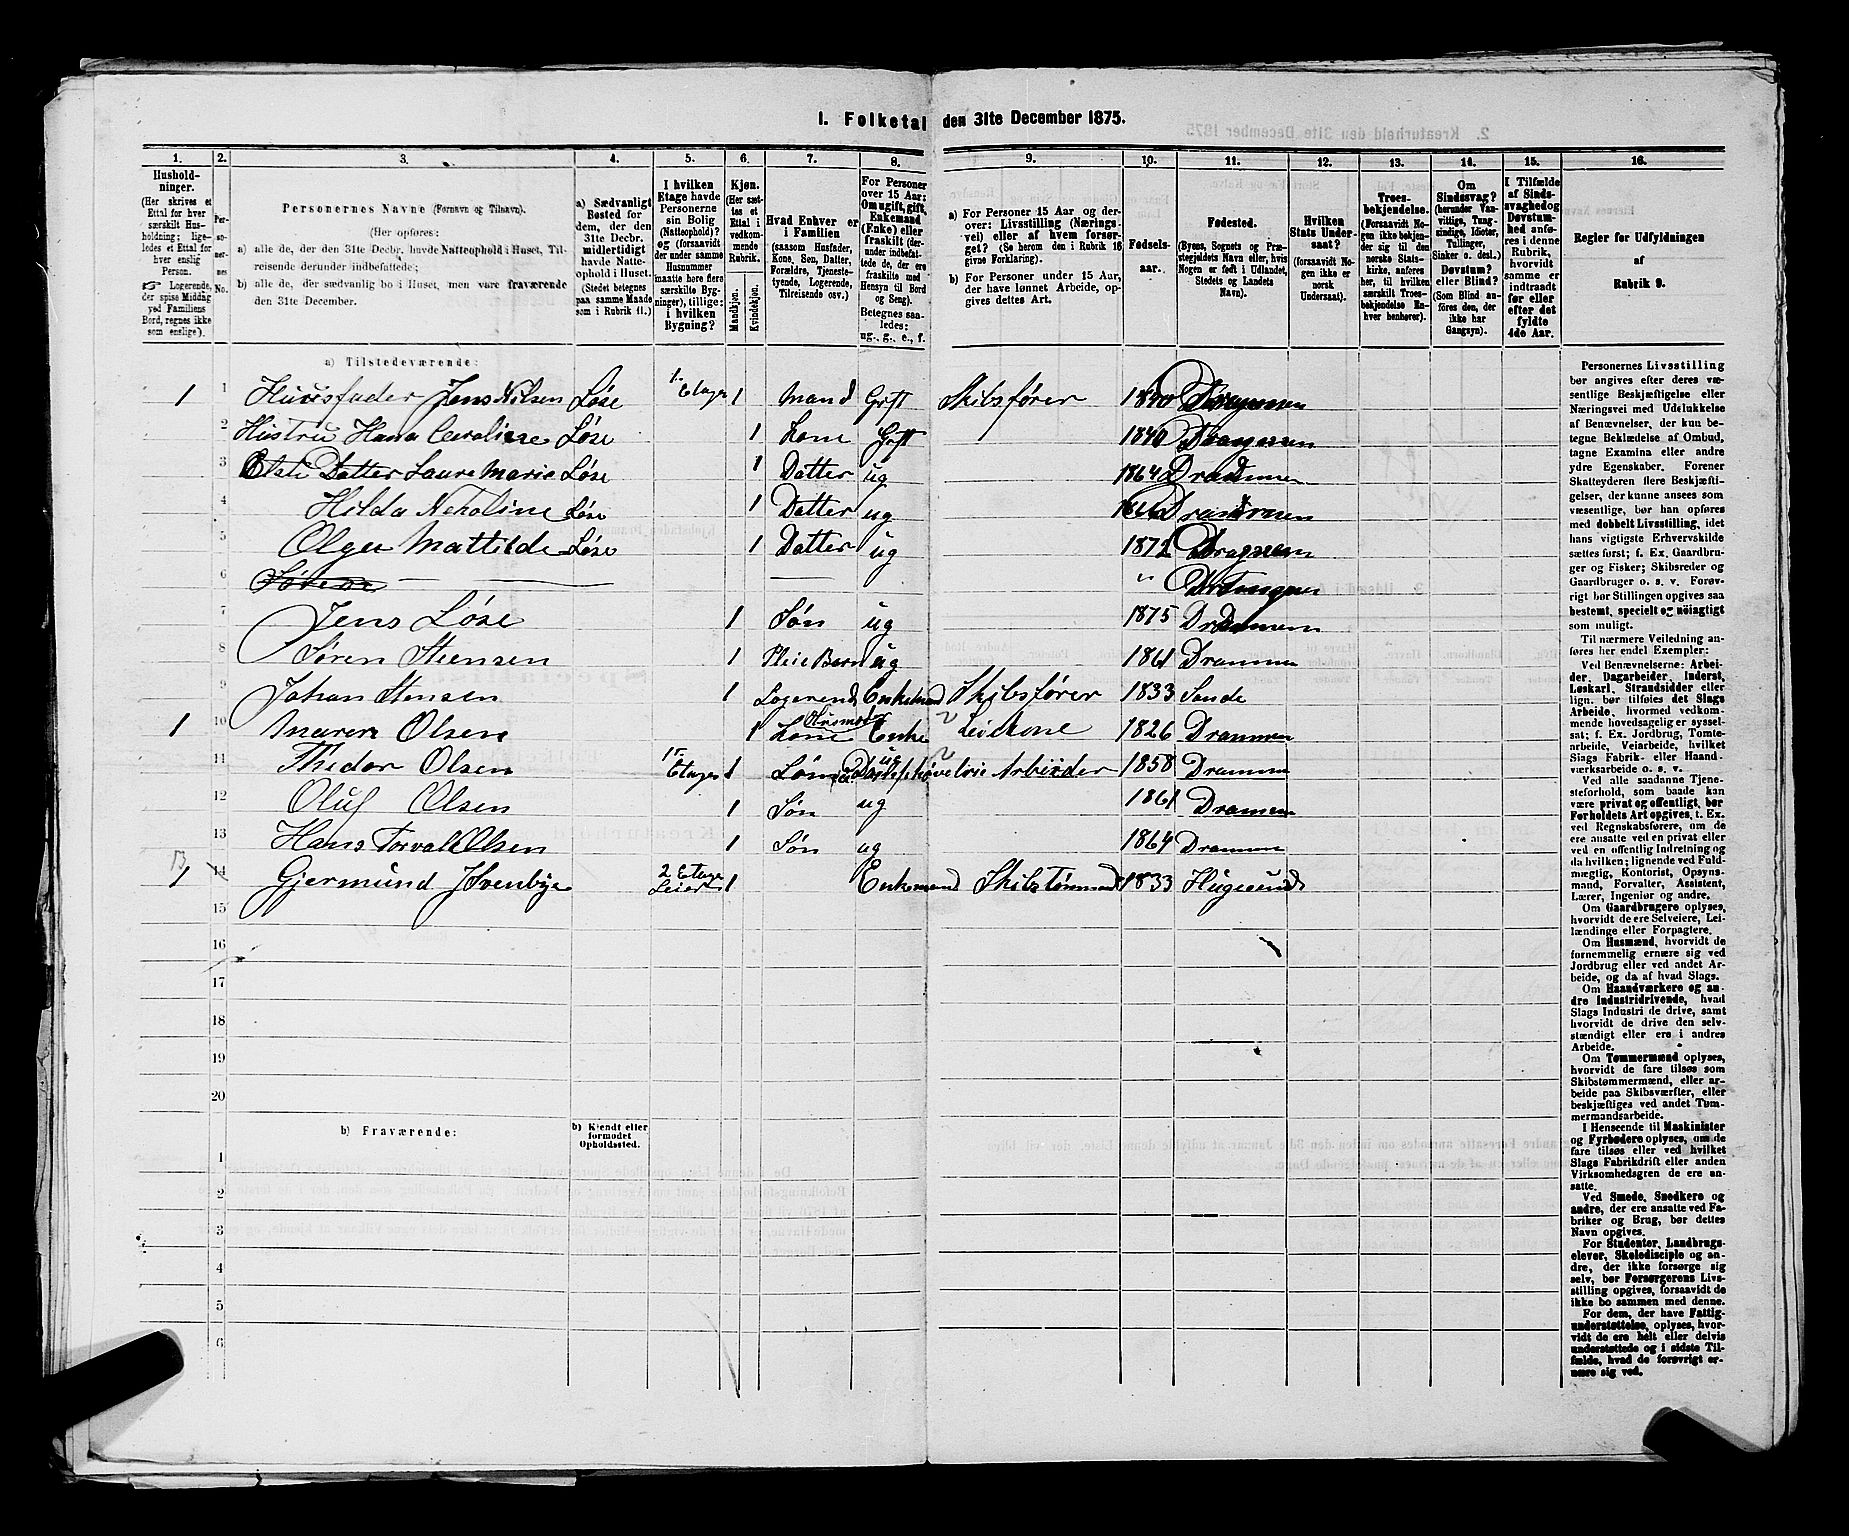 1. Folketal den 31te December 1875.
1. 2. 3. 4. 5. 6. 7. 8. 9. 10. 11. 12. 13. 14. 15. 16.
Hushold-
ninger.
(Her skrives et
Ettal for hver
særskilt Hus-
holdning; lige-
ledes et Ettal for
hver enslig
Person.
☛ Logerende,
der spise Middag
ved Familiens
Bord, regnes ikke
som enslige).
Per-
so-
ner-
nes
No.
Personernes Navne (Fornavn og Tilnavn).
(Her opføres:
a) alle de, der den 31te Decbr. havde Natteophold i Huset, Til-
reisende derunder indbefattede;
b) alle de, der sædvanlig bo i Huset, men vare fraværende
den 31te December.
a) Sædvanligt
Bosted for
dem, der den
31te Decbr.
midlertidigt
havde Natte-
ophold i Huset.
(Stedet betegnes
paa samme Maade
som i Rubrik 11.)
I hvilken
Etage havde
Personerne
sin Bolig
(Natteophold)?
og (forsaavidt
der under samme
Husnummer
maatte høre flere
særskilte Byg-
ninger), tillige:
i hvilken
Bygning?
Kjøn.
(Her sæt-
tes et
Ettal i
vedkom-
mende
Rubrik.
Mandkjøn.
Kvindekjøn.
Hvad Enhver er
i Familien
(saasom Husfader,
Kone, Søn, Datter,
Forældre, Tjeneste-
tyende, Logerende,
Tilreisende osv.)
For Personer
over 15 Aar:
Om ugift, gift,
Enkemand
(Enke) eller
fraskilt (der-
under indbefat-
tede de, der ere
fraskilte med
Hensyn til Bord
og Seng).
Betegnes saa-
ledes:
ug., g., e., f.
a) For Personer 15 Aar og der-
over: Livsstilling (Nærings-
vei) eller af hvem forsør-
get? (Se herom den i Rubrik 16
givne Forklaring).
b) For Personer under 15 Aar,
der have lønnet Arbeide, op-
gives dettes Art.
Fødsels-
aar.
Fødested.
(Byens, Sognets og Præ-
stegjeldets Navn eller, hvis
Nogen er født i Udlandet,
Stedets og Landets
Navn).
Hvilken
Stats Under-
saat?
(forsaavidt No-
gen ikke er
norsk
Undersaat).
Troes-
bekjendelse.
(Forsaavidt No-
gen ikke bekjen-
der sig til den
norske Stats-
kirke, anføres
her, til hvilken
særskilt Troes-
bekjendelse En-
hver henhører).
Om
Sindssvag?
(herunder Van-
vittige, Tung-
sindige, Idioter,
Tullinger,
Sinker o. desl.)
Døvstum?
eller Blind?
(Som Blind an-
føres den, der
ikke har
Gangsyn).
I Tilfælde
af Sinds-
svaghed og
Døvstum-
hed anfø-
res i denne
Rubrik,
hvorvidt
samme er
indtraadt
før eller
efter det
fyldte
4de Aar.
Regler for Udfyldningen
af
Rubrik 9.
a) Tilstedeværende:
1 1 Huusfader Jens Nilsen Løse 1ste Etage 1 Mand Gift Skibsfører 1840 Drammen
2 Hustru Hana Caroline Løse 1 Kone Gift 1840 Drammen
3 Datter Laura Marie Løse 1 Datter ug 1864 Drammen
4 Hilda Løse 1 Datter ug Drammen
5 Olga Mattilde Løse 1 Datter ug 1872 Drammen
6 " Drammen
7 Jens Løse 1 Søn ug 1875 Drammen
8 Søren Steensen 1 Pleie Barn ug 1861 Drammen
9 Johan Stensen 1 Logerend Enkemand Skibsfører 1833 Sande
1 10 Maren Olsen 1 Kone Husmoder Enke 1826 Drammen
11 Thedor Olsen 1ste Etage 1 Søn ug Arbeider 1858 Drammen
12 Oluf Olsen 1 Søn ug 1861 Drammen
13 Hans Torvald Olsen 1 Søn ug 1864 Drammen
1 14 Gjermund 2 Etage Leier 1 Enkemand Skibstømmand 1833
15
16
17
18
19
20
b) Fraværende:
b) Kjendt eller
formodet
Opholdssted.
1
2
3
4
5
6
Personernes Livsstilling
bør angives efter deres væ-
sentlige Beskjæftigelse eller
Næringsvei med Udelukkelse
af Benævnelser, der kun be-
tegne Beklædelse af Ombud,
tagne Examina eller andre
ydre Egenskaber. Forener
Skatteyderen flere Beskjæfti-
gelser, der kunne ansees som
væsentlige, bør han opføres
med dobbelt Livsstilling, idet
hans vigtigste Erhvervskilde
sættes først; f. Ex. Gaardbru-
ger og Fisker; Skibsreder og
Gaardbruger o. s. v. Forøv-
rigt bør Stillingen opgives saa
bestemt, specielt og nøiagtigt
som muligt.
Til nærmere Veiledning an-
føres her endel Exempler:
Ved Benævnelserne: Arbei-
der, Dagarbeider, Inderst,
Løskarl, Strandsidder eller
lign. bør tilføies det Slags
Arbeide, hvormed vedkom-
mende hovedsagelig er syssel-
sat; f. Ex. Jordbrug, Tomte-
arbeide, Veiarbeide, hvilket
Slags Fabrik- eller Haand-
værksarbeide o. s. v.
Ved alle saadanne Tjene-
steforhold, som baade kan
være privat og offentligt, bør
Forholdets Art opgives, t. Ex.
ved Regnskabsførere, om de
ere ansatte ved en privat eller
ved en offentlig Indretning og
da hvilken; lignende ved Fuld-
mægtig, Kontorist, Opsyns-
mand, Forvalter, Assistent,
Lærer, Ingeniør og andre.
Om Gaardbrugere oplyses,
hvorvidt de ere Selveiere, Lei-
lændinge eller Forpagtere.
Om Husmænd, hvorvidt de
fornemmelig ernære sig ved
Jordbrug eller ved andet Ar-
beide, og da af hvad Slags.
Om Haandværkere og an-
dre Industridrivende, hvad
Slags Industri de drive, samt
hvorvidt de drive den selv-
stændigt eller ere i andres
Arbeide.
Om Tømmermænd oplyses,
hvorvidt de fare tilsøs som
Skibstømmermænd, eller ar-
beide paa Skibsværfter, eller
beskjæftiges ved andet Tøm-
mermandsarbeide.
I Henseende til Maskinister
og Fyrbødere oplyses, om de
fare tilsøs eller ved hvilket
Slags Fabrikdrift eller anden
Virksomhedsgren de ere an-
satte.
Ved Smede, Snedkere og
andre, der ere ansatte ved Fa-
briker og Brug, bør dettes
Navn opgives.
For Studenter, Landbrugs-
elever, Skoledisciple og an-
dre, der ikke forsørge sig
selv, bør Forsørgerens Livs-
stilling opgives, forsaavidt de
ikke bo sammen med denne.
For dem, der have Fattig-
understøttelse, oplyses, hvor-
vidt de ere helt eller delvis
understøttede og i sidste Til-
fælde, hvad de forøvrigt er-
nære sig ved.